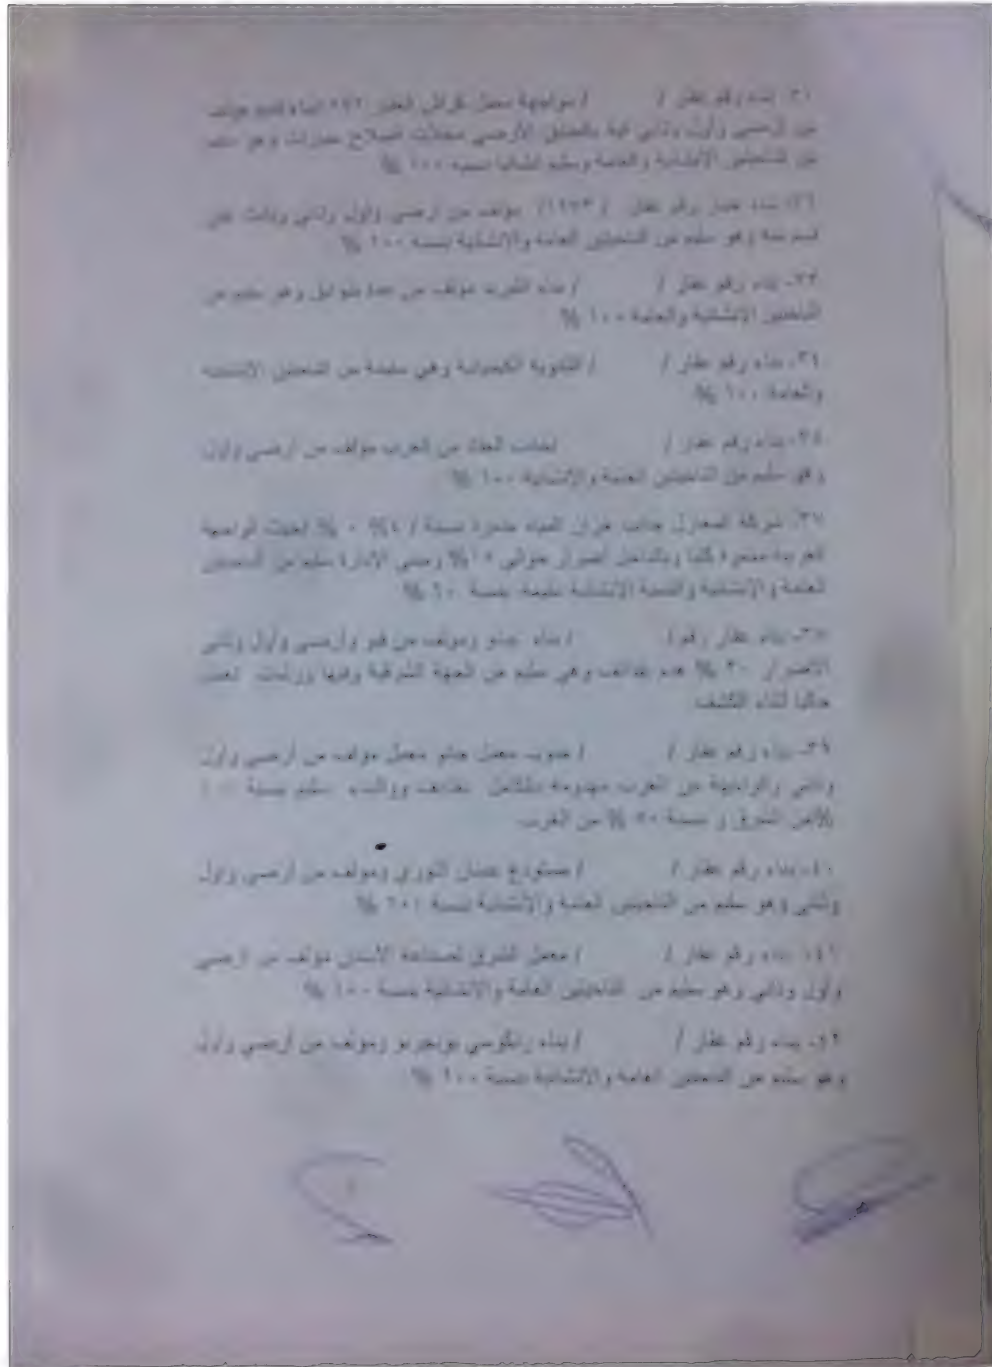 ٣١- بناء رقم عقار / / مواجهة معمل البناء قديم مؤلف
من أرضي وأول وثاني فيه بالطابق الأرضي محلات اصلاح سيارات وهو سليم
من الناحيتين الانشائية والعامة وسليم انشائيا نسبة ١٠٠ %
بناء رقم عقار / ١٩٧٣/ مؤلف من أرضي وأول وثاني وثالث على
وهو سليم من الناحيتين العامة والانشائية بنسبة ١٠٠ %
٣٣- بناء رقم عقار / / بناء مؤلف من عدة طوابق وهو سليم من
الناحيتين الانشائية والعامة ١٠٠ %
٣٤- بناء رقم عقار / / الثانوية الكيميائية وهي سليمة من الناحيتين الانشائية
والعامة ١٠٠ %
بناء رقم عقار / لجانب من الغرب مؤلف من أرضي وأول
وهو سليم من الناحيتين العامة والانشائية ١٠٠ %
٣٧- شركة المغازل جانب خزان المياه بنسبة الواجهة
الغربية مدمرة كليا وبالداخل أضرار حوالي ومبنى الادارة سليم من الناحيتين
العامة والانشائية والبنية الانشائية سليمة بنسبة
٣٨- بناء عقار رقم / / بناء ومؤلف من قبو وأرضي وأول وثاني
الأضرار ٣٠ % وهي سليم من الجهة الشرقية وفيها ورشات تعمل
حاليا أثناء الكشف.
٣٩- بناء رقم عقار / / جنوب معمل معمل مؤلف من أرضي وأول
وثاني والواجهة من الغرب مهدومة بالكامل والبناء سليم بنسبة ١٠٠
% من الشرق و بنسبة من الغرب.
٤٠- بناء رقم عقار / / مستودع النوري ومؤلف من أرضي وأول
وثاني وهو سليم من الناحيتين العامة والانشائية بنسبة ١٠٠ %
٤١- بناء رقم عقار / / معمل الشرق لصناعة مؤلف من أرضي
وأول وثاني وهو سليم من الناحيتين العامة والانشائية بنسبة ١٠٠ %
٤٢- بناء رقم عقار / / بناء رنكوسي ومؤلف من أرضي وأول
وهو سليم من الناحيتين العامة والانشائية بنسبة ١٠٠ %